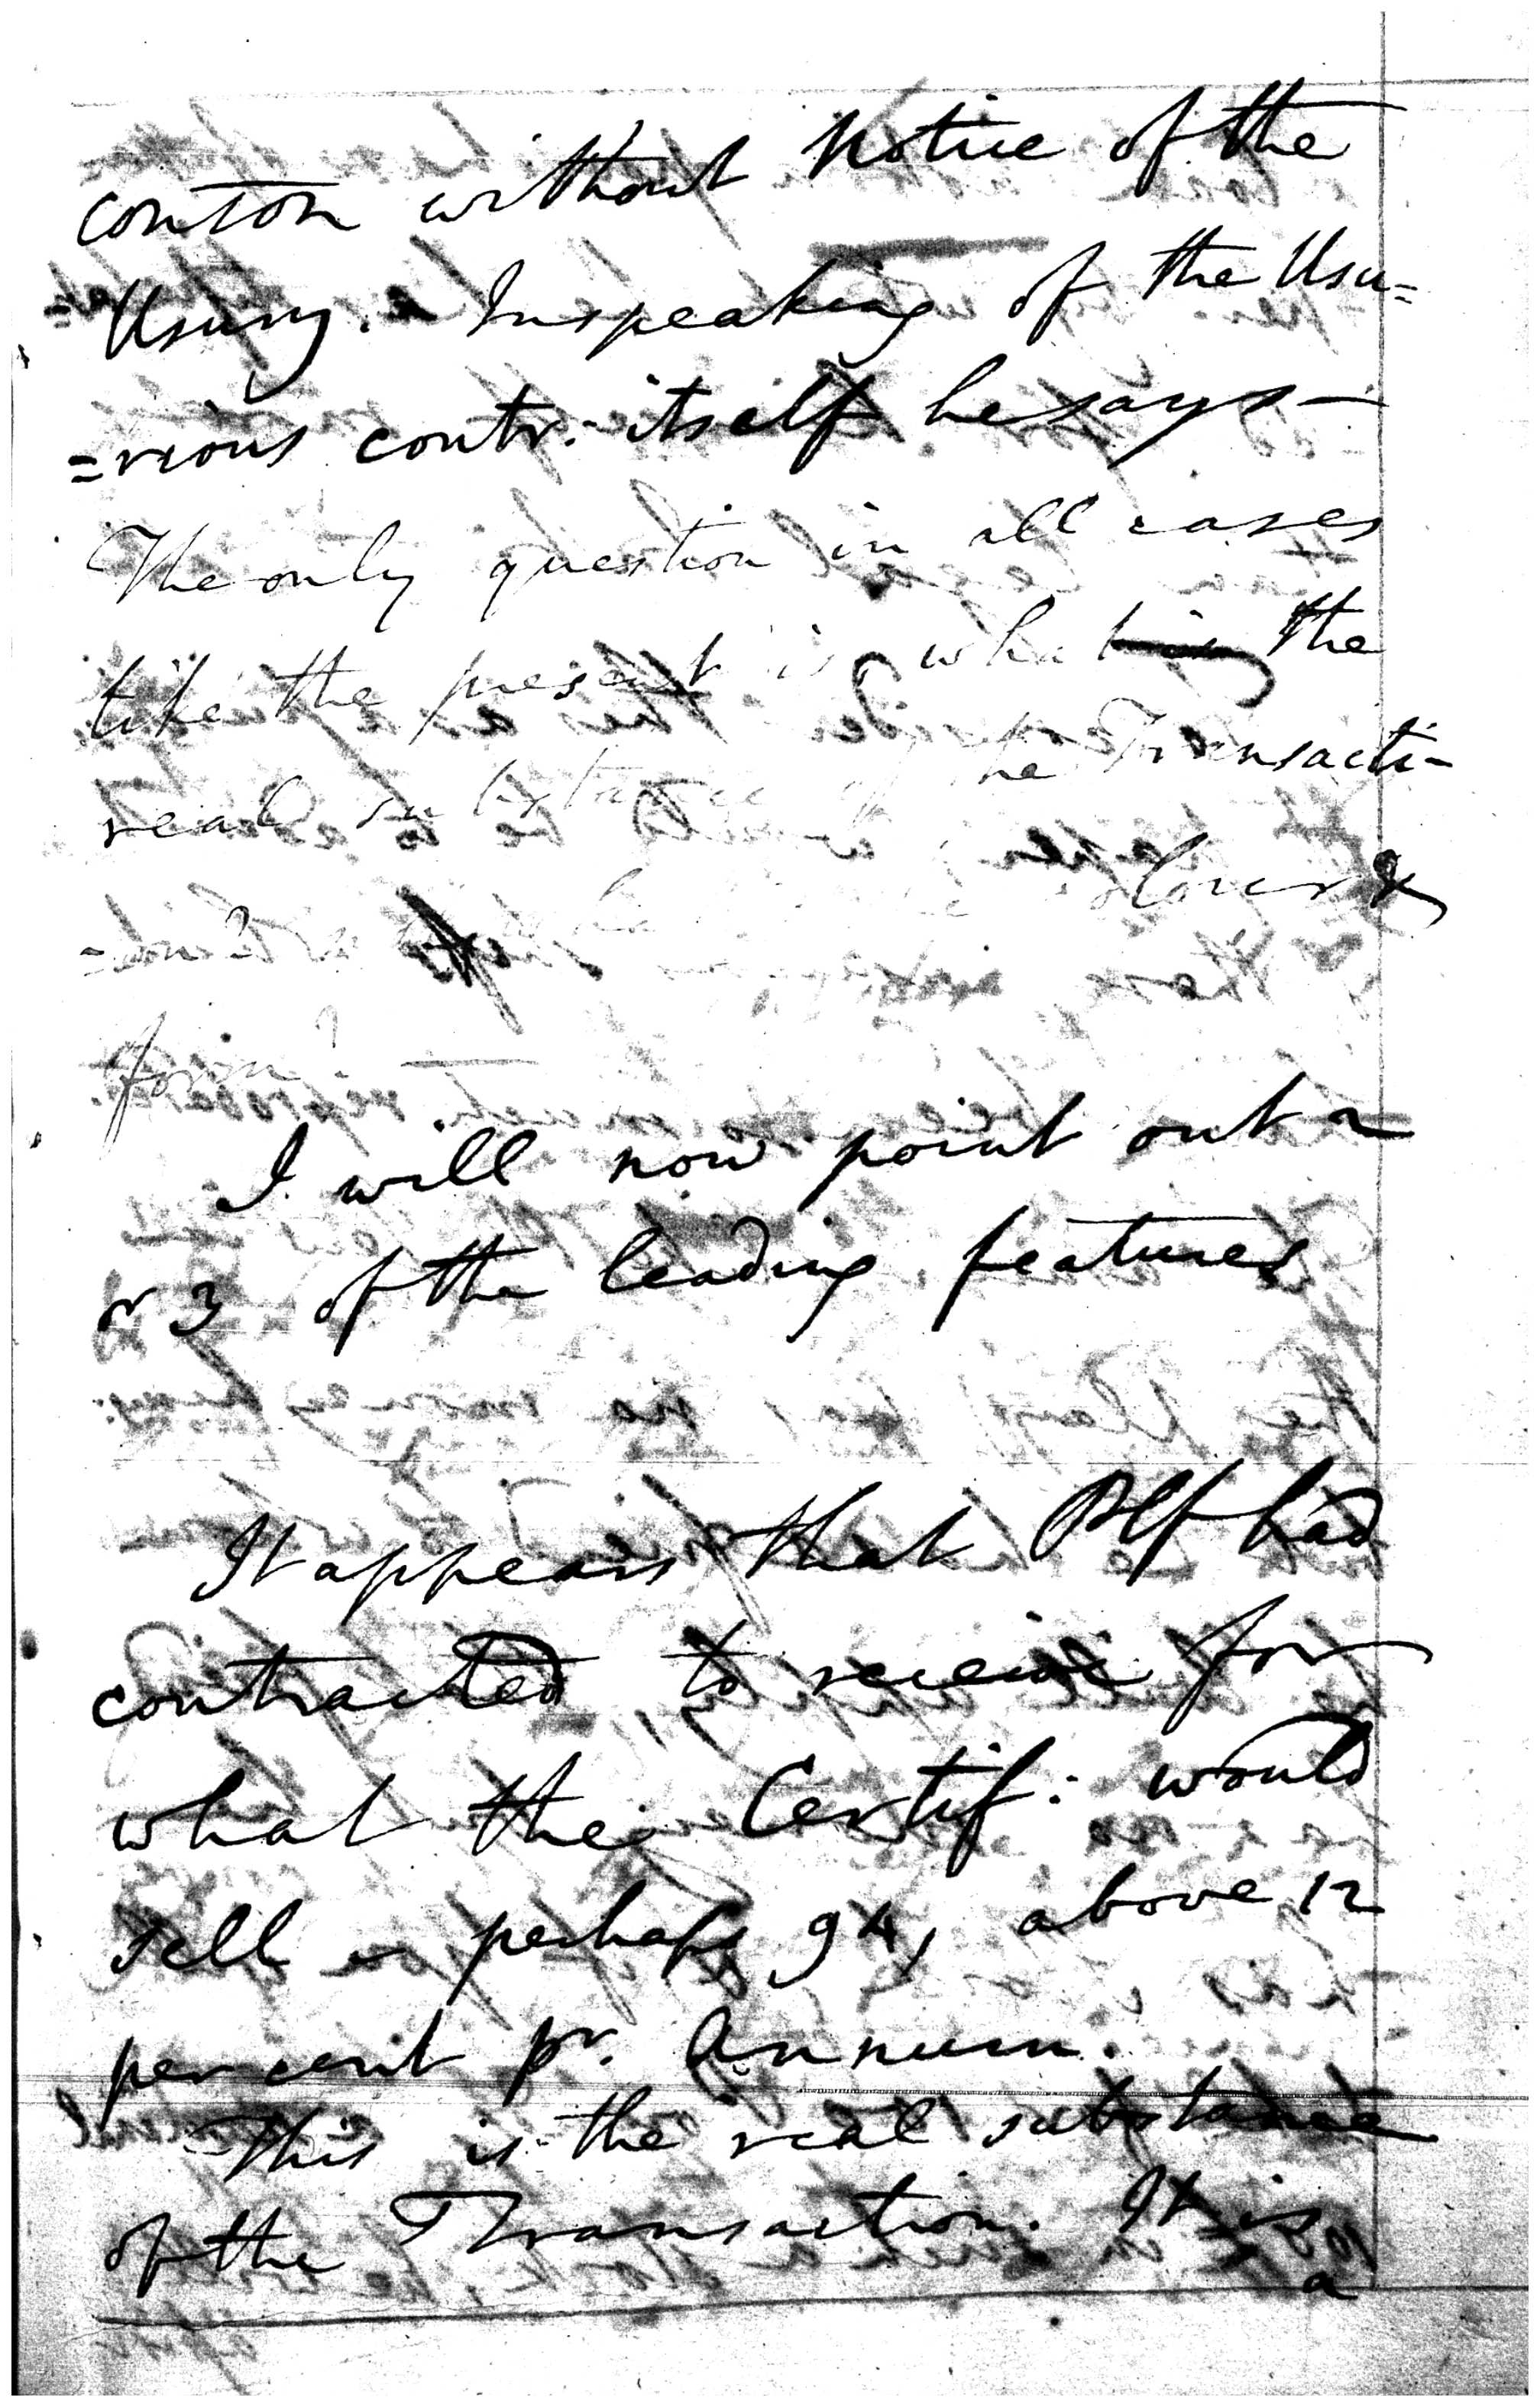 conton without Notice of the
Usury. In speaking of the Usu=
=rious contr: itself he says—
The only question in all cases
like the present is what the
real substance of the Transacti-
colour &
form?
I will now point out 2
or 3 of the leading features
It appears that Plf had
contracted to receive for
what the Certif: would
sell perhaps 94, above 12
per cent pr. Annum.
This is the real substance
of the Transaction. It is
a